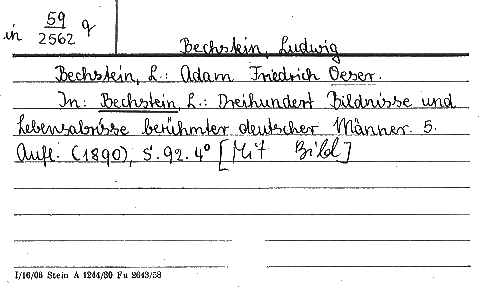 in 59/2562 q
Bechstein, Ludwig
Bechstein, L.: Adam Friedrich Oeser.
In: Bechstein, L.: Dreihundert Bildnisse und
Lebensabrisse berühmter deutscher Männer. 5.
Aufl. (1890), S. 92. 4° [Mit Bild]
I/16/06 Stein A 1244/80 Fu 2643/58